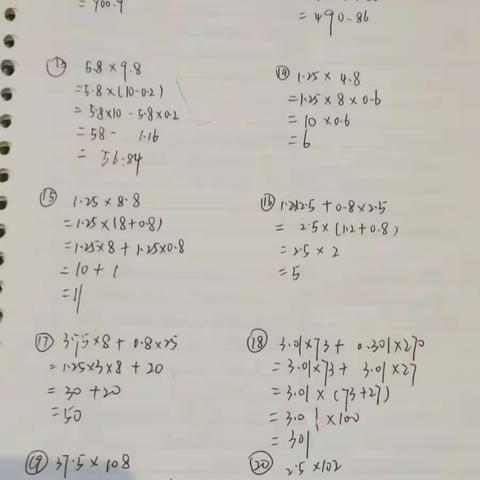 = 900.9
= 490.86
⑬ 5.8 × 9.8
= 5.8 × (10 - 0.2)
= 5.8×10 - 5.8×0.2
= 58 - 1.16
= 56.84
⑭ 1.25 × 4.8
= 1.25 × 8 × 0.6
= 10 × 0.6
= 6
⑮ 1.25 × 8.8
= 1.25 × (8 + 0.8)
= 1.25×8 + 1.25×0.8
= 10 + 1
= 11
⑯ 1.2×2.5 + 0.8×2.5
= 2.5 × (1.2 + 0.8)
= 2.5 × 2
= 5
⑰ 3.75×8 + 0.8×25
= 1.25×3×8 + 20
= 30 + 20
= 50
⑱ 3.01×73 + 0.301×270
= 3.01×73 + 3.01×27
= 3.01 × (73+27)
= 3.01 × 100
= 301
⑲ 37.5 × 108
⑳ 2.5 × 102